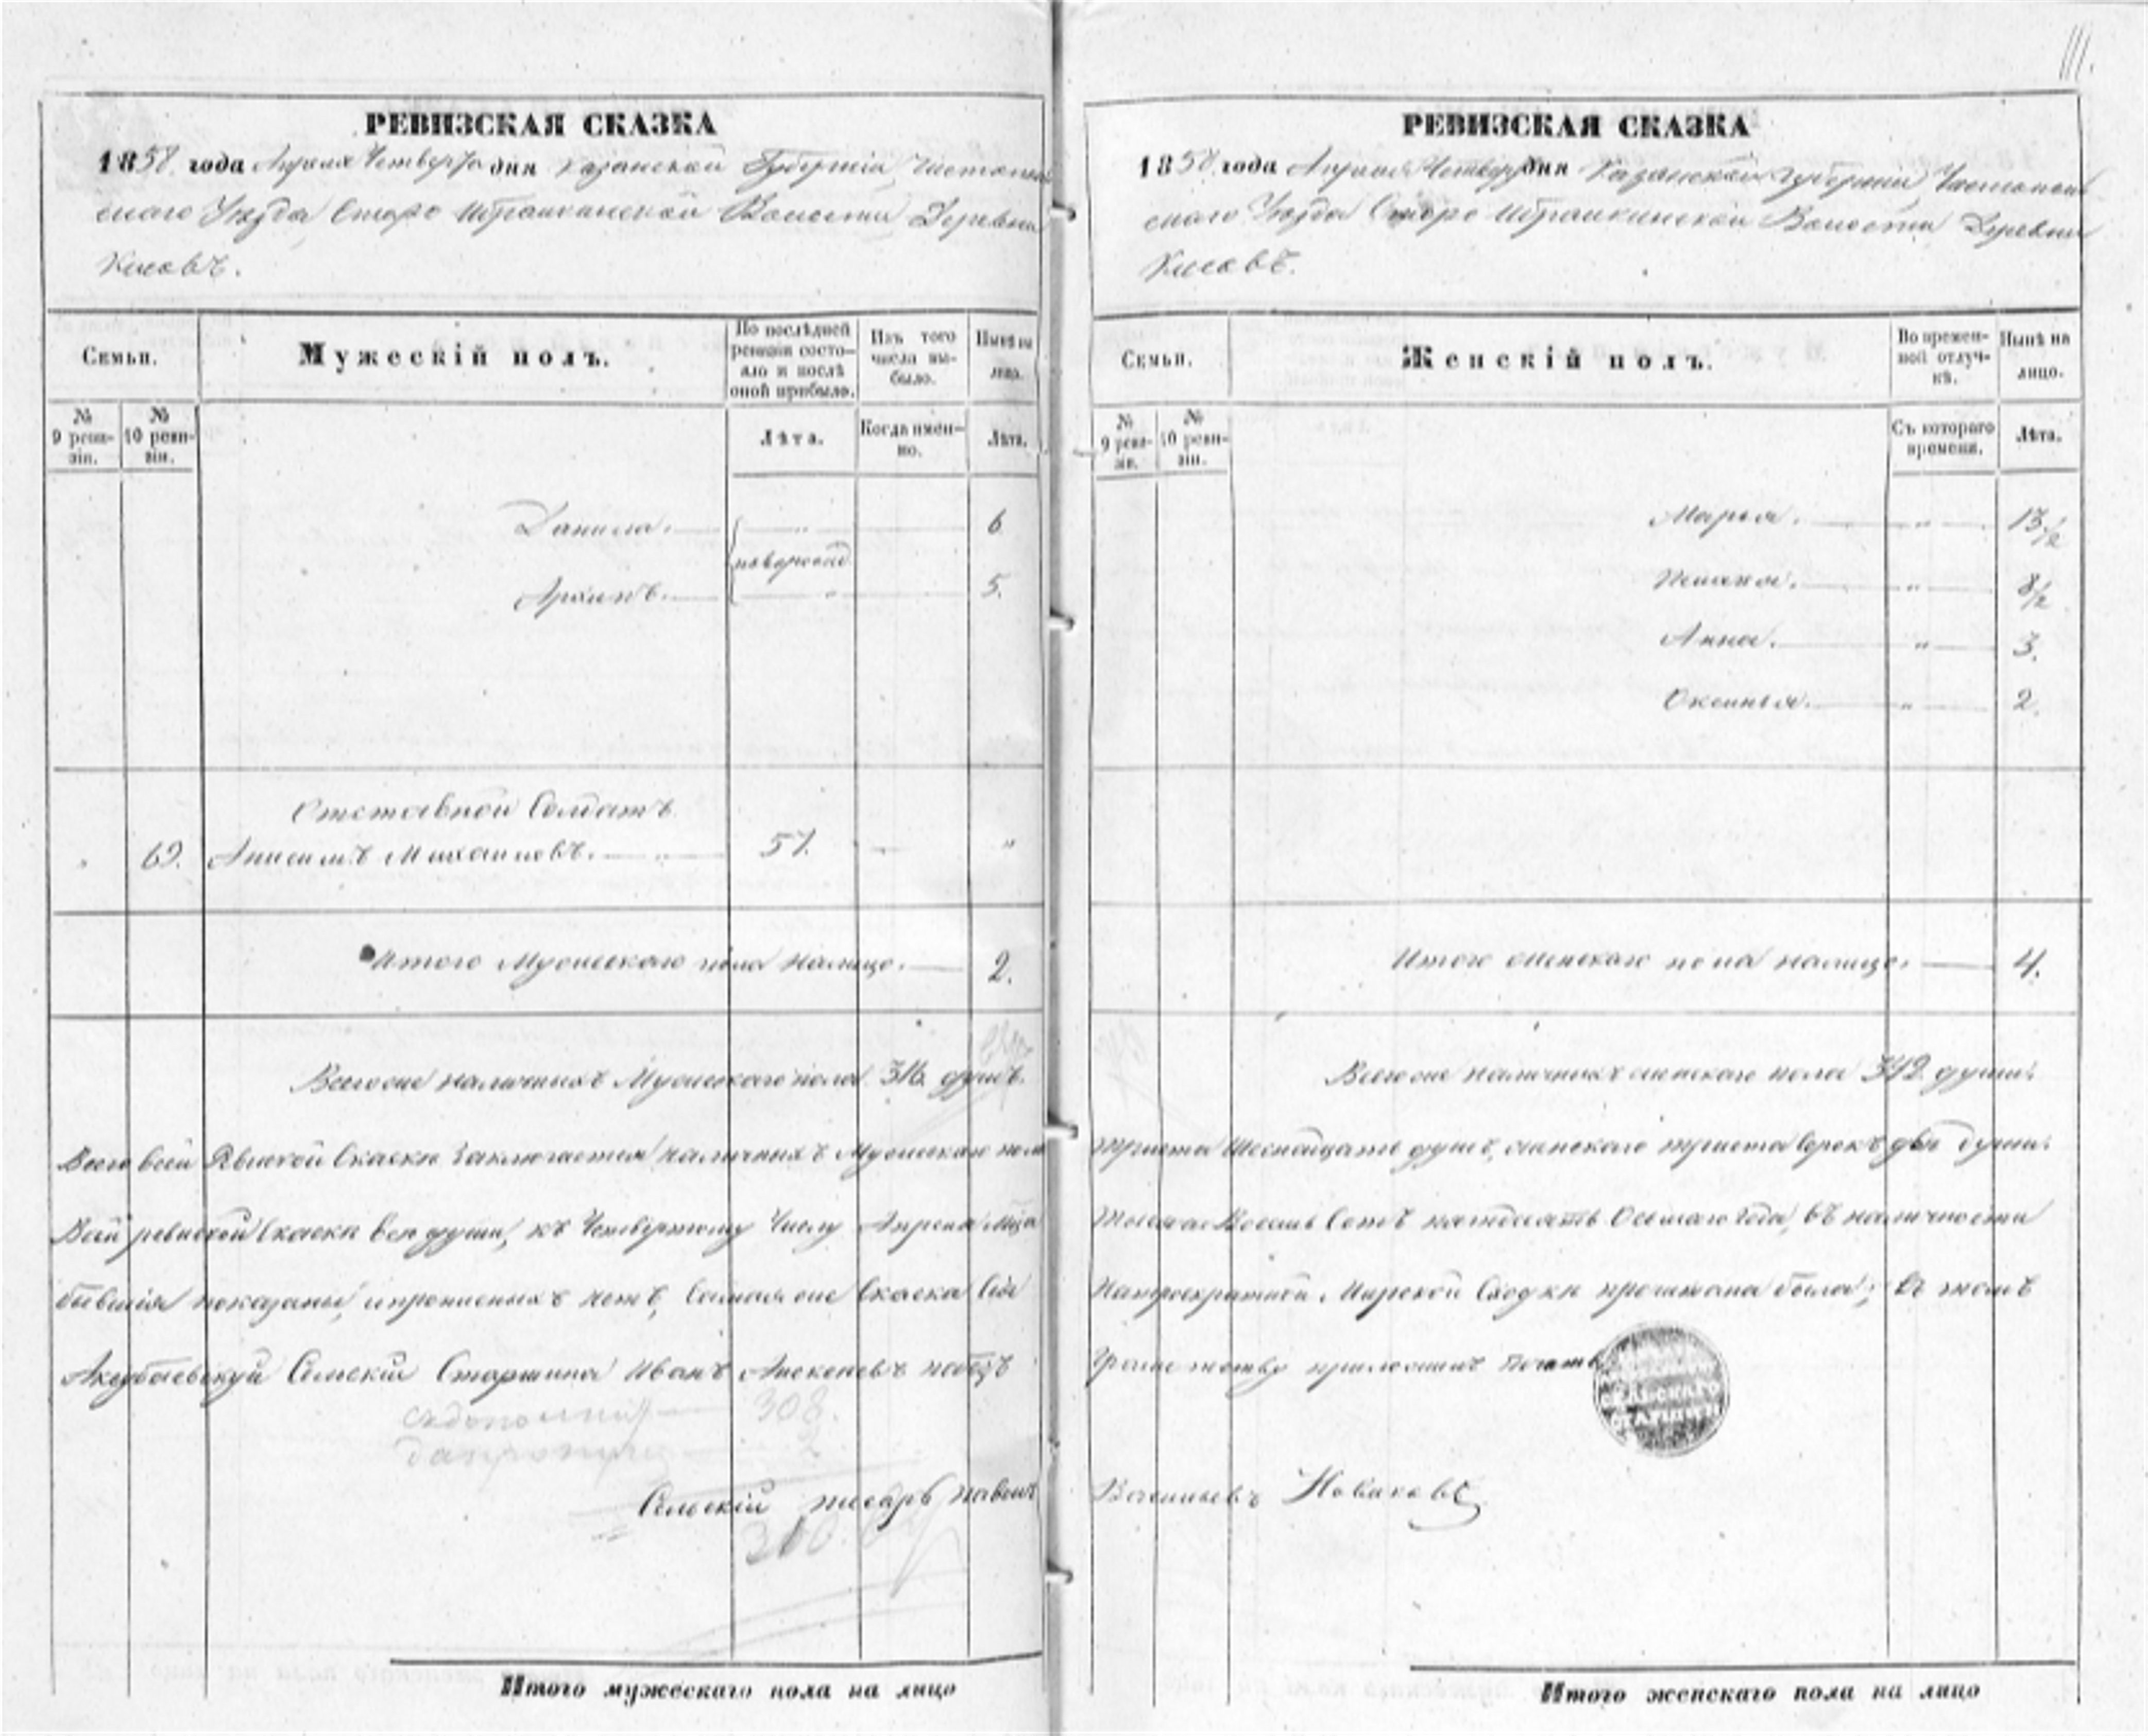 111.
РЕВИЗСКАЯ СКАЗКА
1858 года Апреля Четвертаго дня Казанской Губерніи, Чистополь
скаго Уезда Старо Ибрайкинской Волости Деревни
Киевъ.
Семьи.
Мужескій полъ.
По послѣдней ревизіи состояло и послѣ оной прибыло.
Изъ того числа выбыло.
Нынѣ на лицо.
№ 9 ревизіи.
№ 10 ревизіи.
Лѣта.
Когда именно.
Лѣта.
Данила. " 6
новорожд
Архипъ. " 5.
Отставной Солдатъ
" 69. Анисимъ Михаиловъ. " 57. "
Итого Мужескаго пола налицо. 2.
Всего же наличныхъ Мужескаго пола 316 душъ.
Всего всей Скаски Заключается наличныхъ Мужескаго пола
Всей ревиской Скаски все души, къ Четвертому Числу Апреля Мца
бывшія показаны, и прописныхъ нетъ, Самая же Скаска Сія
Сельскій Старшина Иванъ
308.
2
Сельскій писарь
310.
Итого мужескаго пола на лицо
РЕВИЗСКАЯ СКАЗКА
1858 года Апреля Четвертаго дня Казанской Губерніи, Чистополь
скаго Уезда Старо Ибрайкинской Волости Деревни
Киевъ.
Семьи.
Женскій полъ.
Во временной отлучкѣ.
Нынѣ на лицо.
№ 9 ревизіи.
№ 10 ревизіи.
Съ котораго времени.
Лѣта.
Марья. " 13 1/2
" 8 1/2
Анна. " 3.
Оксинья. " 2.
Итого женскаго пола налицо. 4.
Всего же наличныхъ женскаго пола 342 души.
триста Шеснайцать душъ, женскаго триста Сорокъ две души.
Тысяча Восемь Сотъ пятдесятъ Осьмаго Года, въ наличности
Мирской Сходки прочитана была; въ томъ
приложилъ печать
СЕЛЬСКАГО
СТАРШИНЫ
Васильевъ Новиковъ
Итого женскаго пола на лицо